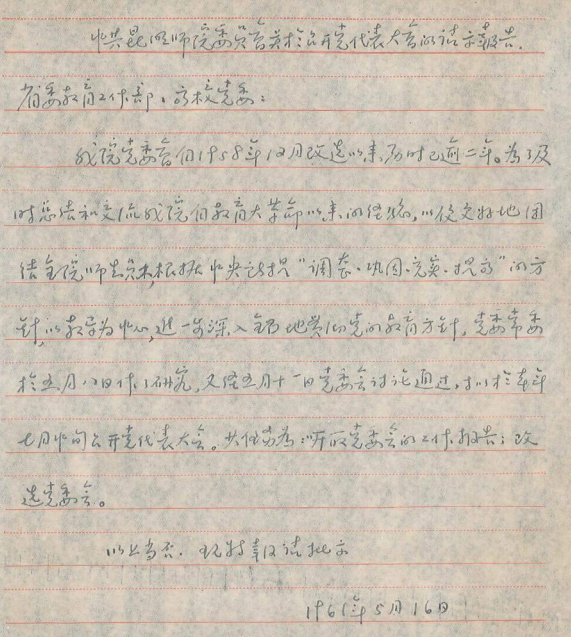 中共昆明师院委员会关於召开党代表大会的请示报告.
省委教育工作部、高校党委：
我院党委会自1958年12月改选以来，历时已逾二年。为了及
时总结和交流我院自教育大革命以来的经验，以便更好地团
结全院师生员工，根据中央所提“调整、巩固、充实、提高”的方
针，以教学为中心，进一步深入全面地贯彻党的教育方针，党委常委
於五月八日作了研究，又经五月十一日党委会讨论通过，拟於本年
七月中旬召开党代表大会。其任务为：听取党委会的工作报告；改
选党委会。
以上当否．现特报请批示
1961年5月16日